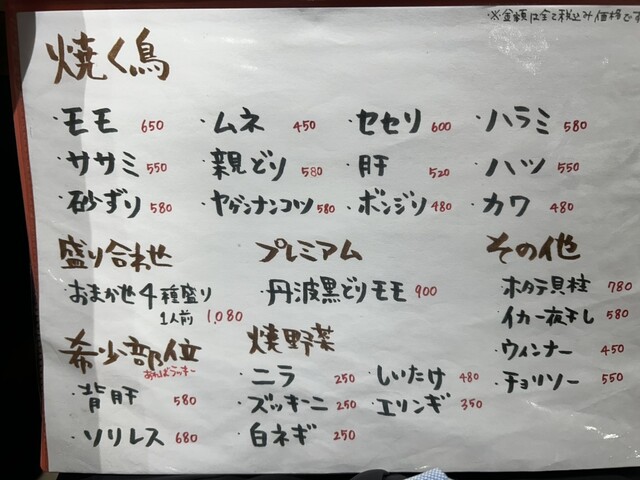 ※金額は全て税込み価格です
焼く鳥
・モモ 650 ・ムネ 450 ・セセリ 600 ・ハラミ 580
・ササミ 550 ・親どり 580 ・肝 520 ・ハツ 550
・砂ずり 580 ・ヤゲンナンコツ 580 ・ボンジリ 480 ・カワ 480
盛り合わせ
おまかせ4種盛り
1人前 1,080
プレミアム
・丹波黒どりモモ 900
その他
・ホタテ貝柱 780
・イカ一夜干し 580
・ウィンナー 450
・チョリソー 550
希少部位
あればラッキー
・背肝 580
・ソリレス 680
焼野菜
・ニラ 250 ・しいたけ 480
・ズッキーニ 250 ・エリンギ 350
・白ネギ 250